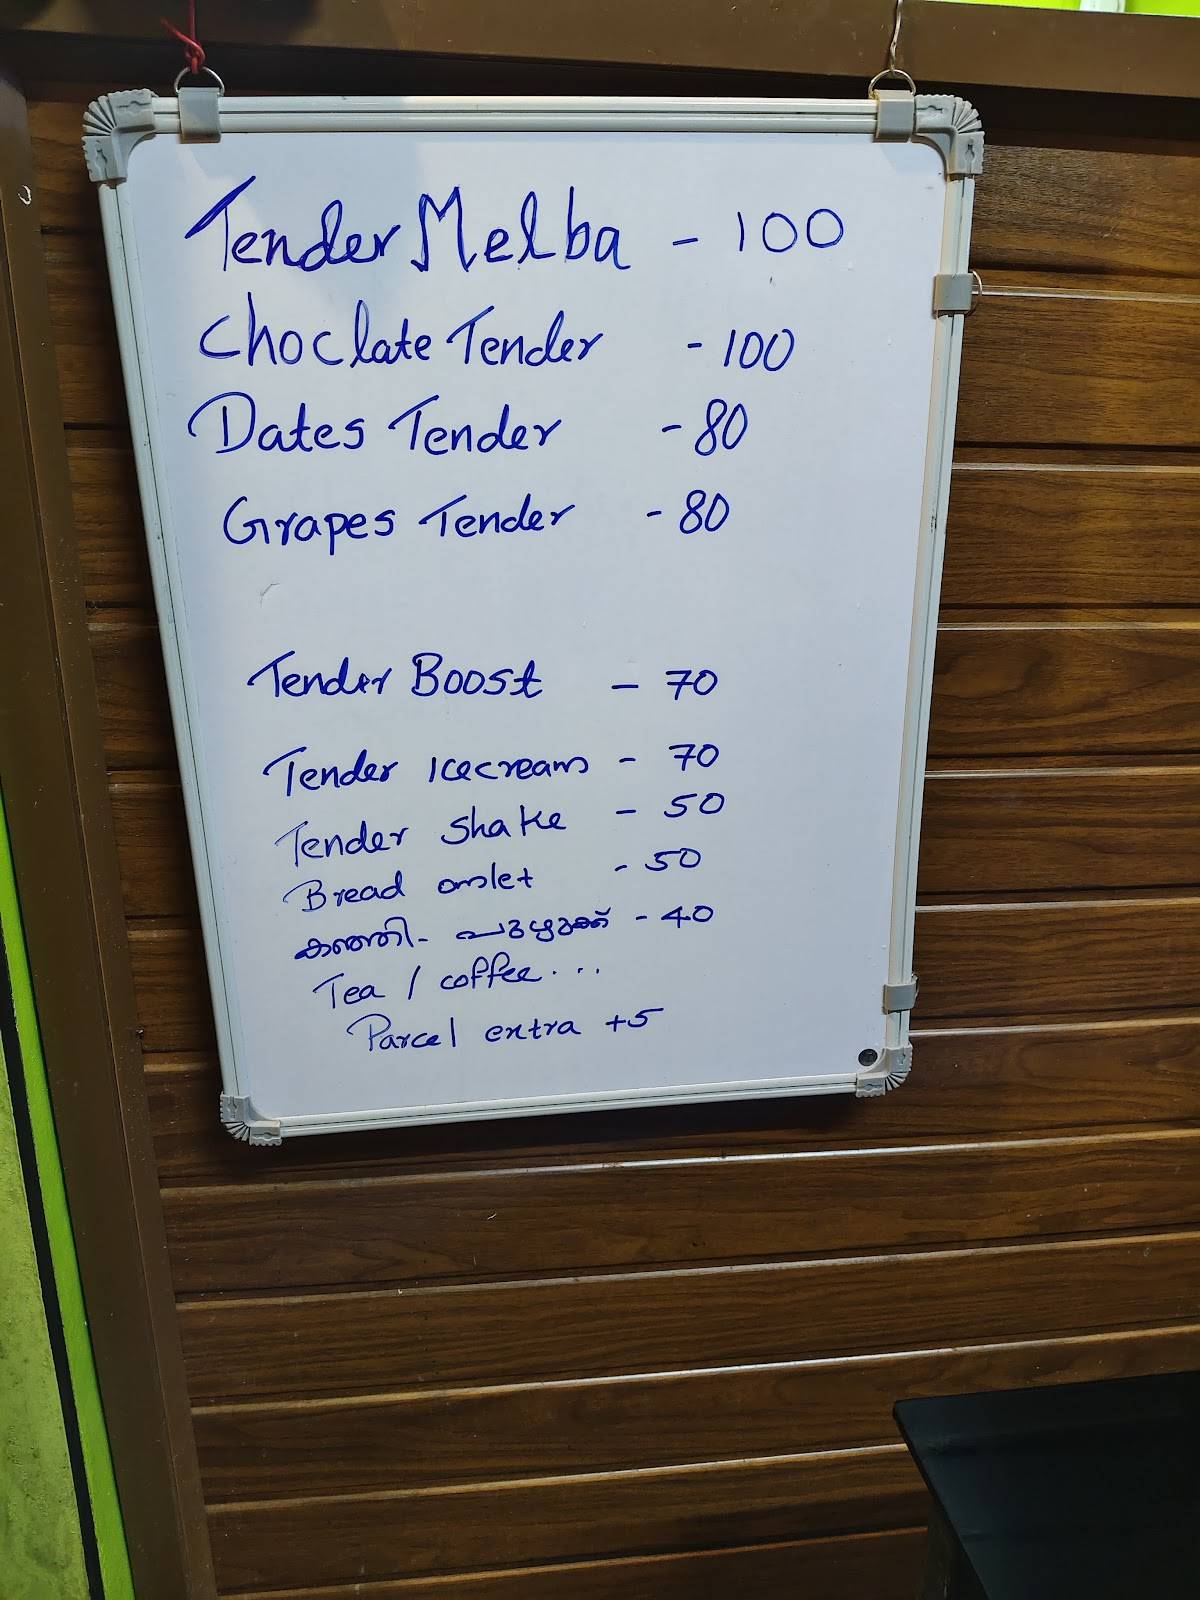 Tender Melba - 100
Choclate Tender - 100
Dates Tender - 80
Grapes Tender - 80
Tender Boost - 70
Tender Icecream - 70
Tender Shake - 50
Bread omlet - 50
കഞ്ഞി - പുഴുക്ക് - 40
Tea / coffee ...
Parcel extra +5